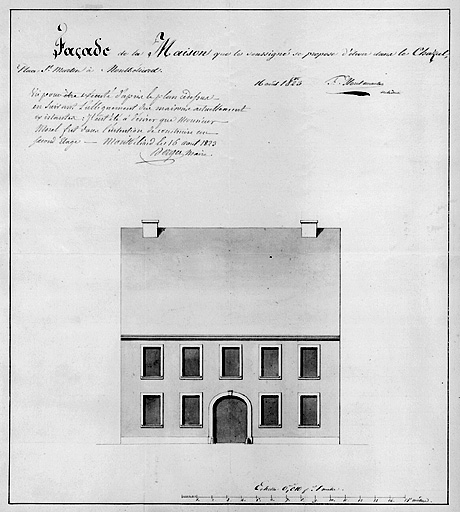 Façade de la Maison que le soussigné se propose d'élever dans le
Place St. Martin à Montbéliard.
16 août 1823
Vû pour être exécuté d'après le plan
en suivant l'allignement des maisons actuellement
existantes; il est à désirer que Monsieur
Morel fut dans l'intention de construire un
second étage — Montbéliard le 16 aout 1823
Maire
Echelle